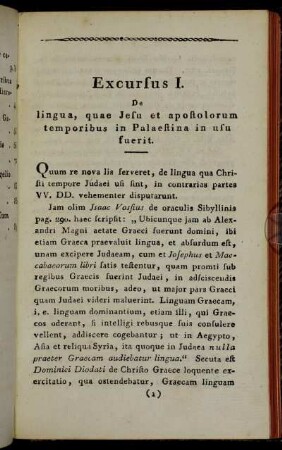 Excurſus I.
De
lingua, quae Jeſu et apoſtolorum
temporibus in Palaeſtina in uſu
fuerit.
Quum re nova lis ferveret, de lingua qua Chri-
ſti tempore Judaei uſi ſint, in contrarias partes
VV. DD. vehementer disputarunt.
Iam olim Isaac Voſſius de oraculis Sibyllinis
pag. 290. haec ſcripſit: „Ubicunque jam ab Alex-
andri Magni aetate Graeci fuerunt domini, ibi
etiam Graeca praevaluit lingua, et abſurdum eſt,
unam excipere Judaeam, cum et Joſephus et Mac-
cabaeorum libri ſatis teſtentur, quam promti ſub
regibus Graecis fuerint Judaei, in adſciſcendis
Graecorum moribus, adeo, ut major pars Graeci
quam Judaei videri maluerint. Linguam Graecam,
i. e. linguam dominantium, etiam illi, qui Grae-
cos oderant, ſi intelligi rebusque ſuis conſulere
vellent, addiscere cogebantur; ut in Aegypto,
Aſia et reliqua Syria, ita quoque in Judaea nulla
praeter Graecam audiebatur lingua.“ Secuta eſt
Dominici Diodati de Chriſto Graece loquente ex-
ercitatio, qua ostendebatur, Graecam linguam
(1)